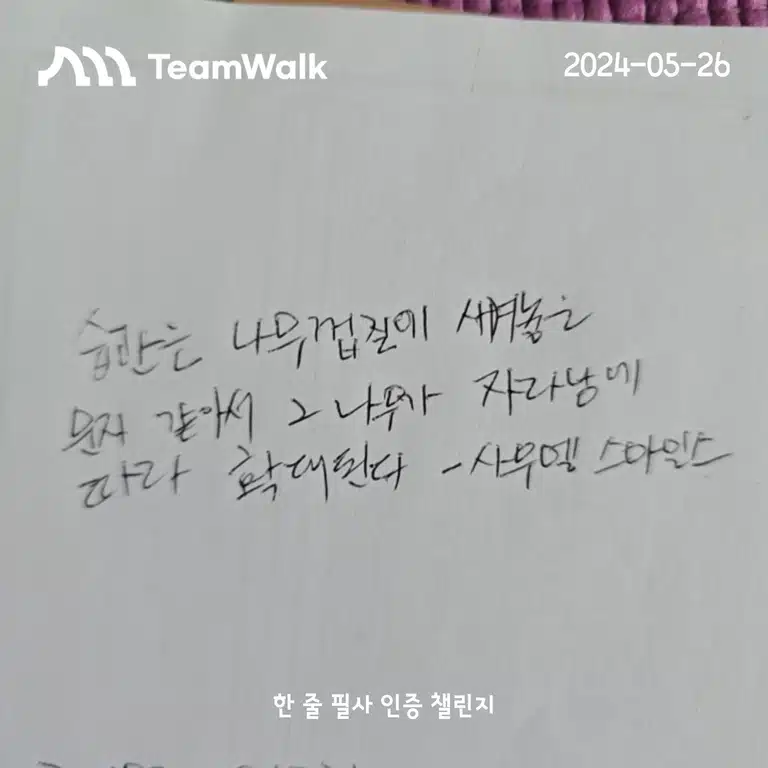 TeamWalk
2024-05-26
습관은 나무껍질에 새겨놓은
문자 같아서 그 나무가 자라남에
따라 확대된다 - 사무엘 스마일스
한 줄 필사 인증 챌린지